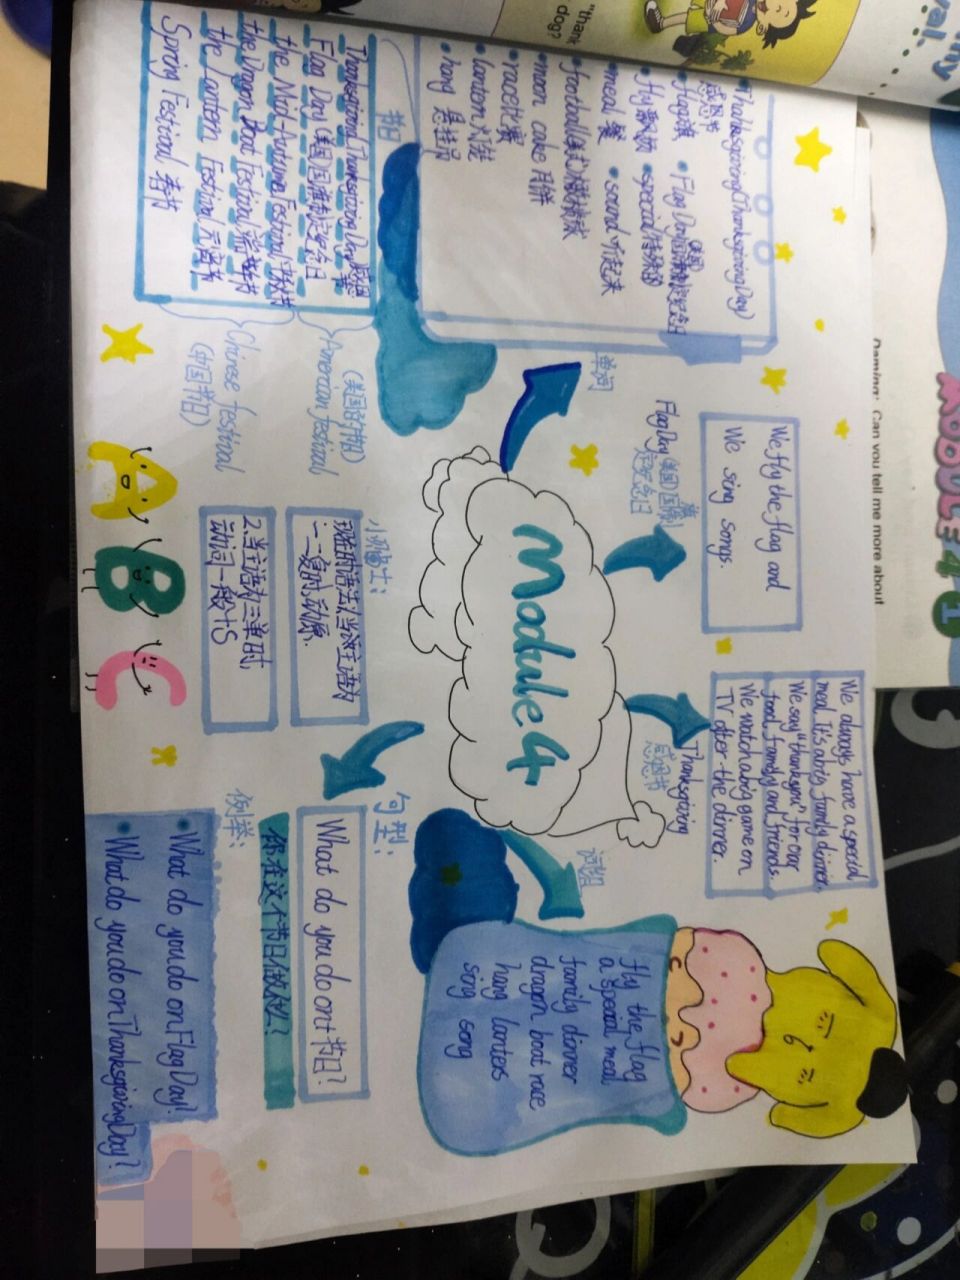 Module 4
单词
• Thanksgiving (Thanksgiving Day)
感恩节
• flag 旗
• Flag Day
• fly
• special 特殊的
• meal 餐
• sound 听起来
• football
• moon cake 月饼
• race 比赛
• lantern 灯笼
• hang 悬挂
节日
Thanksgiving (Thanksgiving Day) 感恩节
Flag Day (美国国旗制定纪念日)
the Mid-Autumn Festival 中秋节
the Dragon Boat Festival 端午节
the Lantern Festival 元宵节
Spring Festival 春节
American festival
(美国的节日)
Chinese festival
(中国节日)
Flag Day (美国)国旗制
定纪念日
We fly the flag and
We sing songs.
Thanksgiving
感恩节
We always have a special
meal. It's a big family dinner.
We say "thank you" for our
food, family and friends.
We watch a big game on
TV after the dinner.
词组
fly the flag
a special meal
family dinner
dragon boat race
hang lanteos
song song
小贴士:
一、二复时,动原.
2.当主语为三单时,
动词一般+s
A B C
句型:
What do you do on+节日?
你在这个节日做什么?
例举:
• What do you do on Flag Day?
• What do you do on Thanksgiving Day?
MODULE 4 1
Daming: Can you tell me more about
"thank
dog?